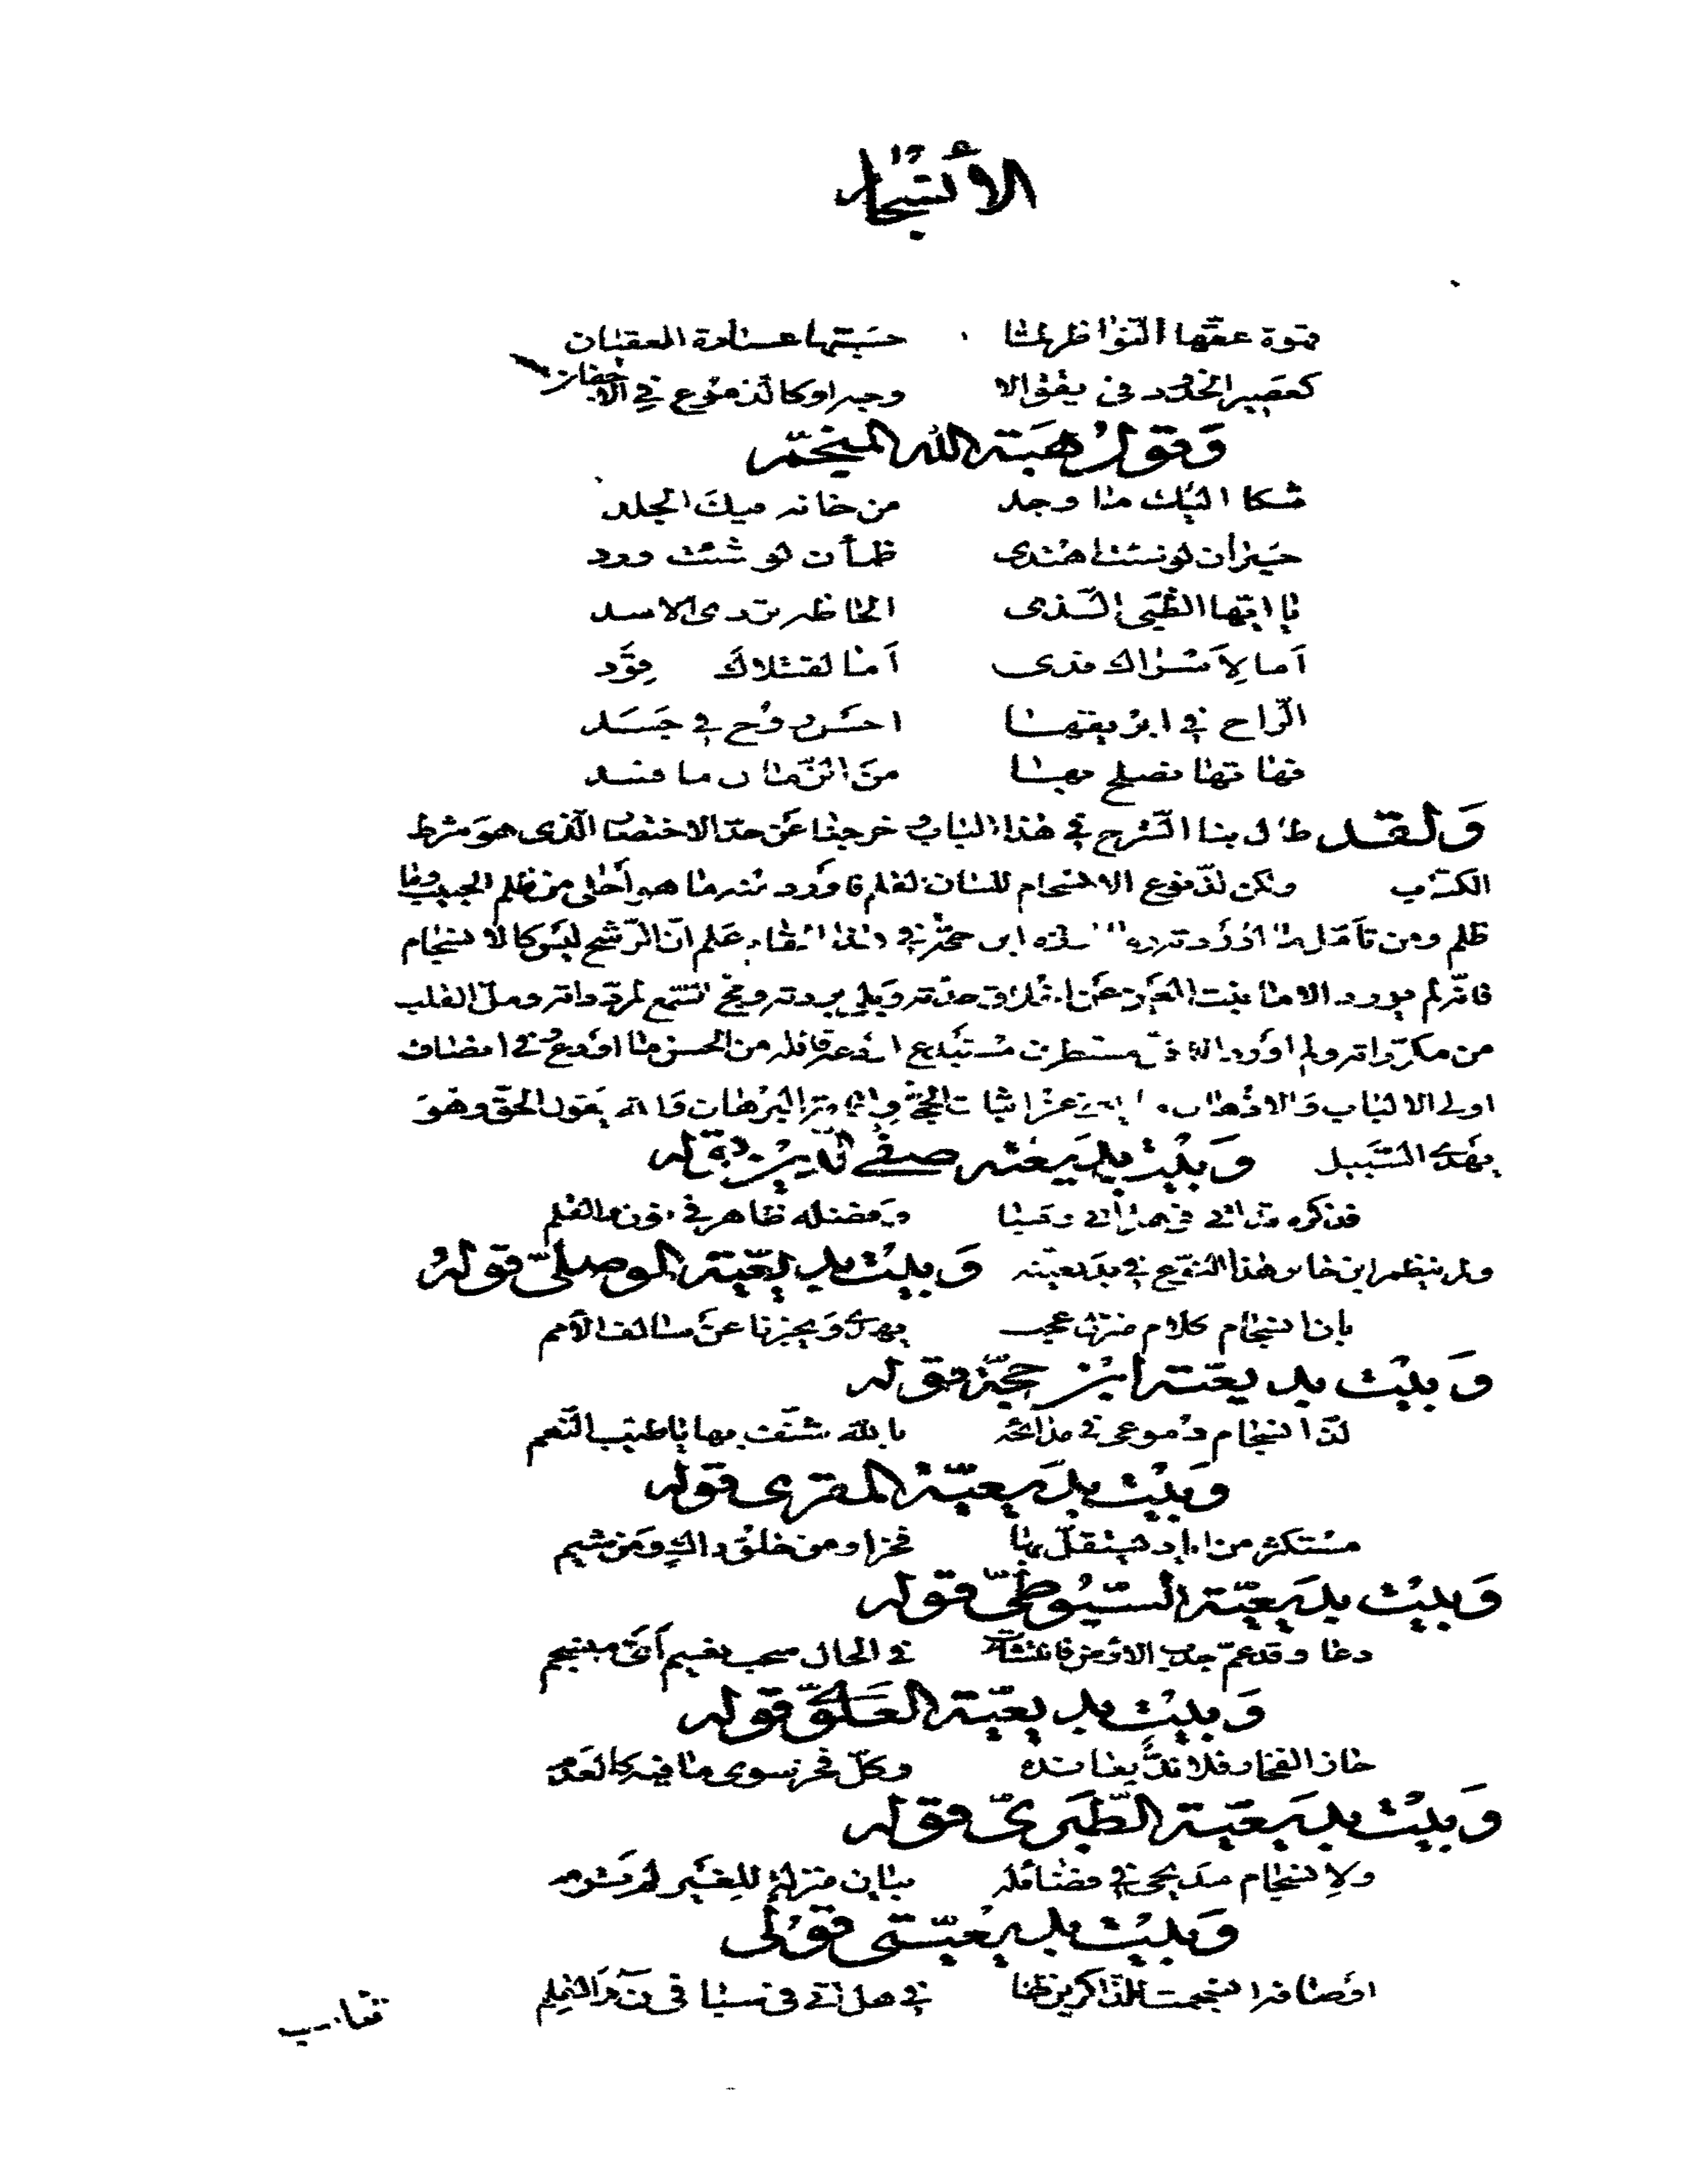 الانسجام
قهوة عقها النواظر لما حسبتها عصارة العقيان
كعصير الخدود في يقق الا وجه او كالدموع في الاجفان
وقول هبة الله المنجم
شكا اليك ما وجد من خانه فيك الجلد
حيران لو شئت اهتدى ظمآن لو شئت ورد
يا ايها الظبي الذي الحاظه تردي الاسد
أما لأسراك فدى أما لقتلاك قود
الراح في ابريقها احسن روح في جسد
فهاتها نصلح بها من الزمان ما فسد
ولقد طال بنا الشرح في هذا الباب خرجنا عن حد الاختصار الذي هو شرط
الكتاب ولكن لذ نوع الانسجام للسان القلم فأورد منه ما هو أحلى من ظلم الحبيب وما
ظلم ومن تأمل ما اورد ابن حجة في هذا المقام علم ان الرشح ليس كالانسجام
فانه لم يورد الا ما نبت العين عن اخلاق جدته وبلي بردته ومج السمع لمردداته ومل القلب
من مكرراته ولم اورد الا مستطرف مستبدع من الحسن ما اودع في اصناف
اولي الالباب والاذهان عن اثبات الحجة واقامة البرهان والله يقول الحق وهو
يهدي السبيل وبيت بديعية صفي الدين قوله
فذكره قد اتى في هل أتى وسبا وفضله ظاهر في نون والقلم
ولم ينظم ابن جابر هذا النوع في بديعيته وبيت بديعية الموصلي قوله
بان انسجام كلام منزل عجب يهدي ويخبرنا عن سالف الأمم
وبيت بديعية ابن حجة قوله
لذ انسجام دموعي في مدائحه بالله شنف بها يا طيب النغم
وبيت بديعية المقري قوله
مستكثر من اياد يستقل بها فخرا ومن خلق زاك ومن شيم
وبيت بديعية السيوطي قوله
دعا وقد عم جدب الارض فانتشأت في الحال سحب بغيم أي منسجم
وبيت بديعية العلوي قوله
حاز الفخار فلا ند يعانده وكل فخر سوى ما فيه كالعدم
وبيت بديعية الطبري قوله
ولانسجام مديحي في فضائله بيان منزلة للغير لم ترم
وبيت بديعيتي قولي
اوصافه انسجمت للذاكرين لها في هل أتى في سبا في نون والقلم